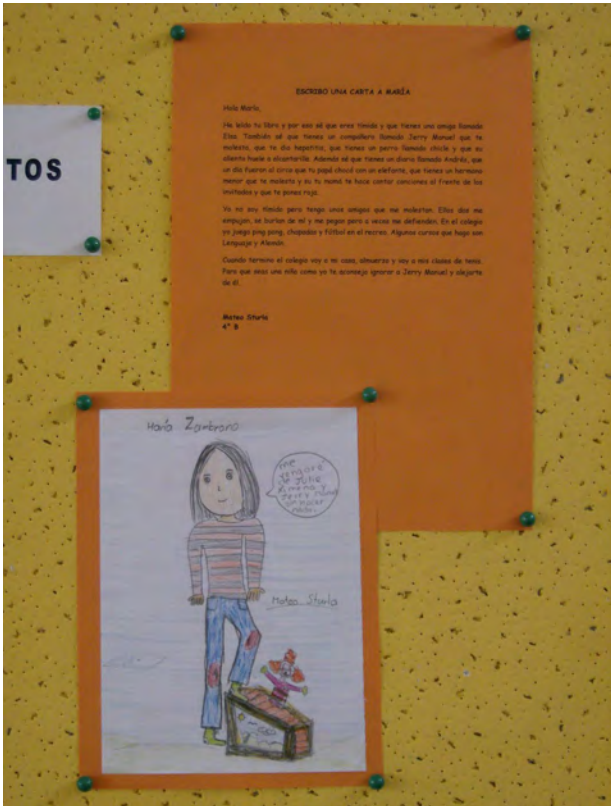 TOS
ESCRIBO UNA CARTA A MARÍA
Hola María,
He leído tu libro y por eso sé que eres tímida y que tienes una amiga llamada
Elsa. También sé que tienes un compañero llamado Jerry Manuel que te
molesta, que te dio hepatitis, que tienes un perro llamado chicle y que su
aliento huele a alcantarilla. Además sé que tienes un diario llamado Andrés, que
un día fueron al circo que tu papá chocó con un elefante, que tienes un hermano
menor que te molesta y su tu mamá te hace cantar canciones al frente de los
invitados y que te pones roja.
Yo no soy tímido pero tengo unos amigos que me molestan. Ellos dos me
empujan, se burlan de mí y me pegan pero a veces me defienden. En el colegio
yo juego ping pong, chapadas y fútbol en el recreo. Algunos cursos que hago son
Lenguaje y Alemán.
Cuando termino el colegio voy a mi casa, almuerzo y voy a mis clases de tenis.
Para que seas una niña como yo te aconsejo ignorar a Jerry Manuel y alejarte
de él.
Mateo Sturla
4° B
María Zambrano
me
vengaré
de Julie
y
Jerry
sin hacer
nada.
Mateo Sturla